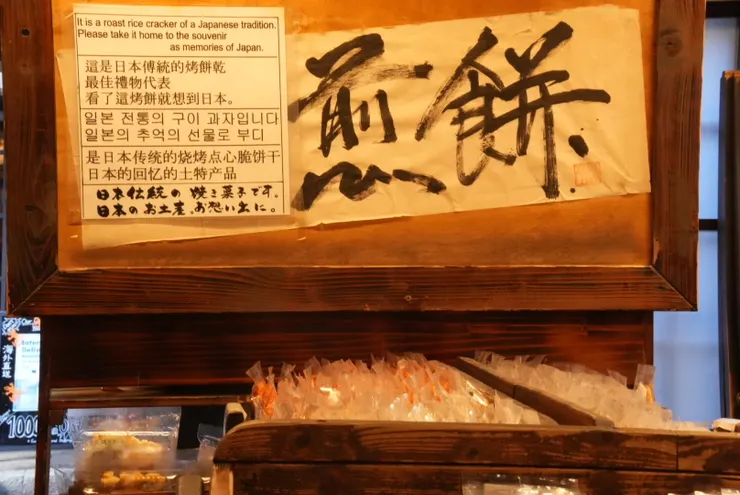 It is a roast rice cracker of a Japanese tradition.
Please take it home to the souvenir
as memories of Japan.
這是日本傳統的烤餅乾
最佳禮物代表
看了這烤餅就想到日本。
일본 전통의 구이 과자입니다
일본의 추억의 선물로 부디
是日本传统的烧烤点心脆饼干
日本的回忆的土特产品
日本伝統の焼き菓子です。
日本のお土産、お想い出に。
煎餅
海外直送
1000